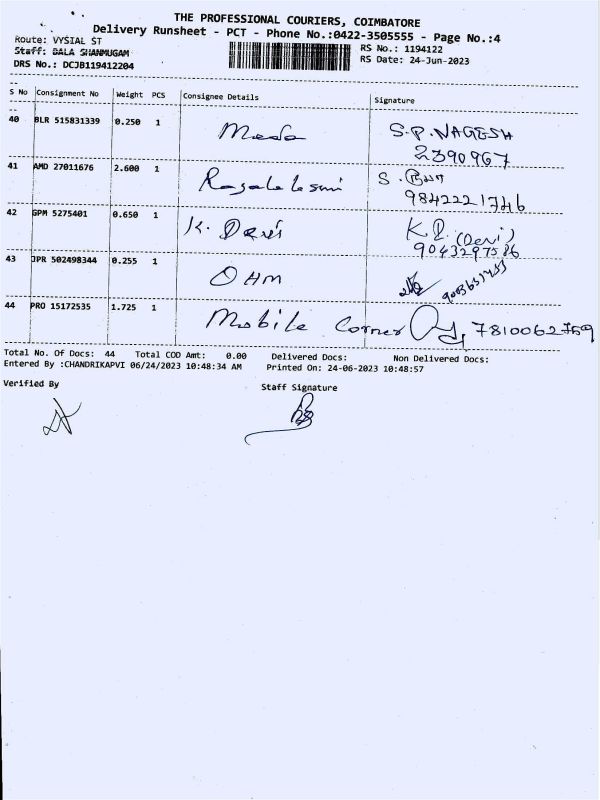 THE PROFESSIONAL COURIERS, COIMBATORE
Delivery Runsheet - PCT - Phone No.:0422-3505555 - Page No.:4
Route: VYSIAL ST
RS No.: 1194122
Staff: BALA SHANMUGAM
RS Date: 24-Jun-2023
DRS No.: DCJB119412204
S No Consignment No Weight PCS Consignee Details Signature
40 BLR 515831339 0.250 1 S.P. NAGESH
2390967
41 AMD 27011676 2.600 1 S.
9842221746
42 GPM 5275401 0.650 1 K. Devis K.D. (Devi)
9043297586
43 JPR 502498344 0.255 1 OHM
44 PRO 15172535 1.725 1 Mobile Corner 7810062759
Total No. Of Docs: 44 Total COD Amt: 0.00 Delivered Docs: Non Delivered Docs:
Entered By :CHANDRIKAPVI 06/24/2023 10:48:34 AM Printed On: 24-06-2023 10:48:57
Verified By Staff Signature